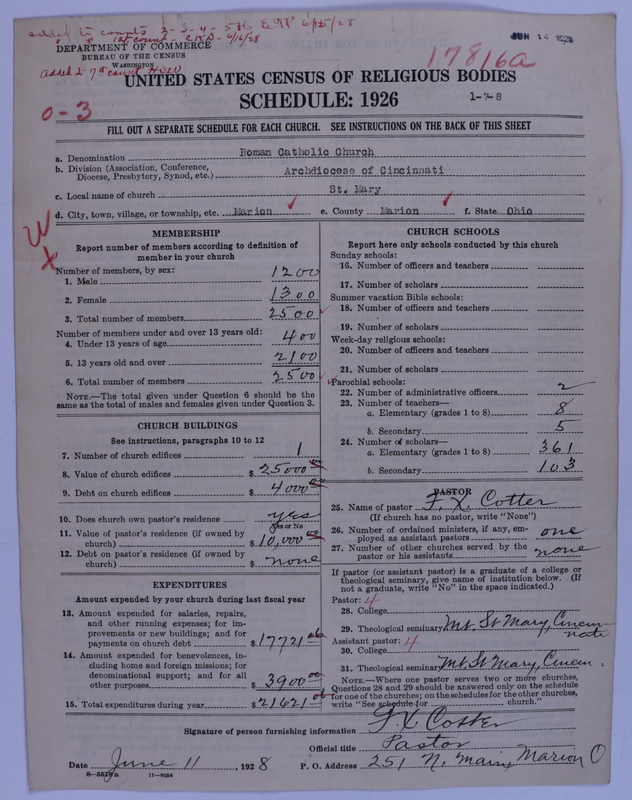 added to counts 2-3-4-5
JUN 14 1928
DEPARTMENT OF COMMERCE
BUREAU OF THE CENSUS
WASHINGTON
added to 7th count
17816a
UNITED STATES CENSUS OF RELIGIOUS BODIES
SCHEDULE: 1926
1-7-8
0-3
FILL OUT A SEPARATE SCHEDULE FOR EACH CHURCH. SEE INSTRUCTIONS ON THE BACK OF THIS SHEET
a. Denomination Roman Catholic Church
b. Division (Association, Conference, Diocese, Presbytery, Synod, etc.) Archdiocese of Cincinnati
c. Local name of church St. Mary
d. City, town, village, or township, etc. Marion e. County Marion f. State Ohio
MEMBERSHIP
Report number of members according to definition of
member in your church
Number of members, by sex:
1. Male 1200
2. Female 1300
3. Total number of members 2500
Number of members under and over 13 years old:
4. Under 13 years of age 400
5. 13 years old and over 2100
6. Total number of members 2500
NOTE.—The total given under Question 6 should be
same as the total of males and females given under Question 3.
CHURCH BUILDINGS
See instructions, paragraphs 10 to 12
7. Number of church edifices 1
8. Value of church edifices $25000 00
9. Debt on church edifices $4000 00
10. Does church own pastor's residence yes
Yes or No
11. Value of pastor's residence (if owned by
church) $10,000 00
12. Debt on pastor's residence (if owned by
church) $ none
EXPENDITURES
Amount expended by your church during last fiscal year
13. Amount expended for salaries, repairs,
and other running expenses; for im-
provements or new buildings; and for
payments on church debt $17721 06
14. Amount expended for benevolences, in-
cluding home and foreign missions; for
denominational support; and for all
other purposes $3900 00
15. Total expenditures during year $21621 06
CHURCH SCHOOLS
Report here only schools conducted by this church
Sunday schools:
16. Number of officers and teachers
17. Number of scholars
Summer vacation Bible schools:
18. Number of officers and teachers
19. Number of scholars
Week-day religious schools:
20. Number of officers and teachers
21. Number of scholars
Parochial schools:
22. Number of administrative officers 2
23. Number of teachers—
a. Elementary (grades 1 to 8) 8
b. Secondary 5
24. Number of scholars—
a. Elementary (grades 1 to 8) 361
b. Secondary 103
PASTOR
25. Name of pastor F. X. Cotter
(If church has no pastor, write "None")
26. Number of ordained ministers, if any, em-
ployed as assistant pastors one
27. Number of other churches served by the
pastor or his assistants none
If pastor (or assistant pastor) is a graduate of a college or
theological seminary, give name of institution below. (If
not a graduate, write "No" in the space indicated.)
Pastor: 4
28. College
29. Theological seminary Mt. St Mary, Cincin-
nati
Assistant pastor: 4
30. College
31. Theological seminary Mt. St Mary, Cincin.
NOTE.—Where one pastor serves two or more churches,
Questions 28 and 29 should be answered only on the schedule
for one of the churches; on the schedules for the other churches,
write "See schedule for church."
Signature of person furnishing information F. X. Cotter
Official title Pastor
Date June 11, 1928 P. O. Address 251 N. Main, Marion O
8-5519a 11-9054